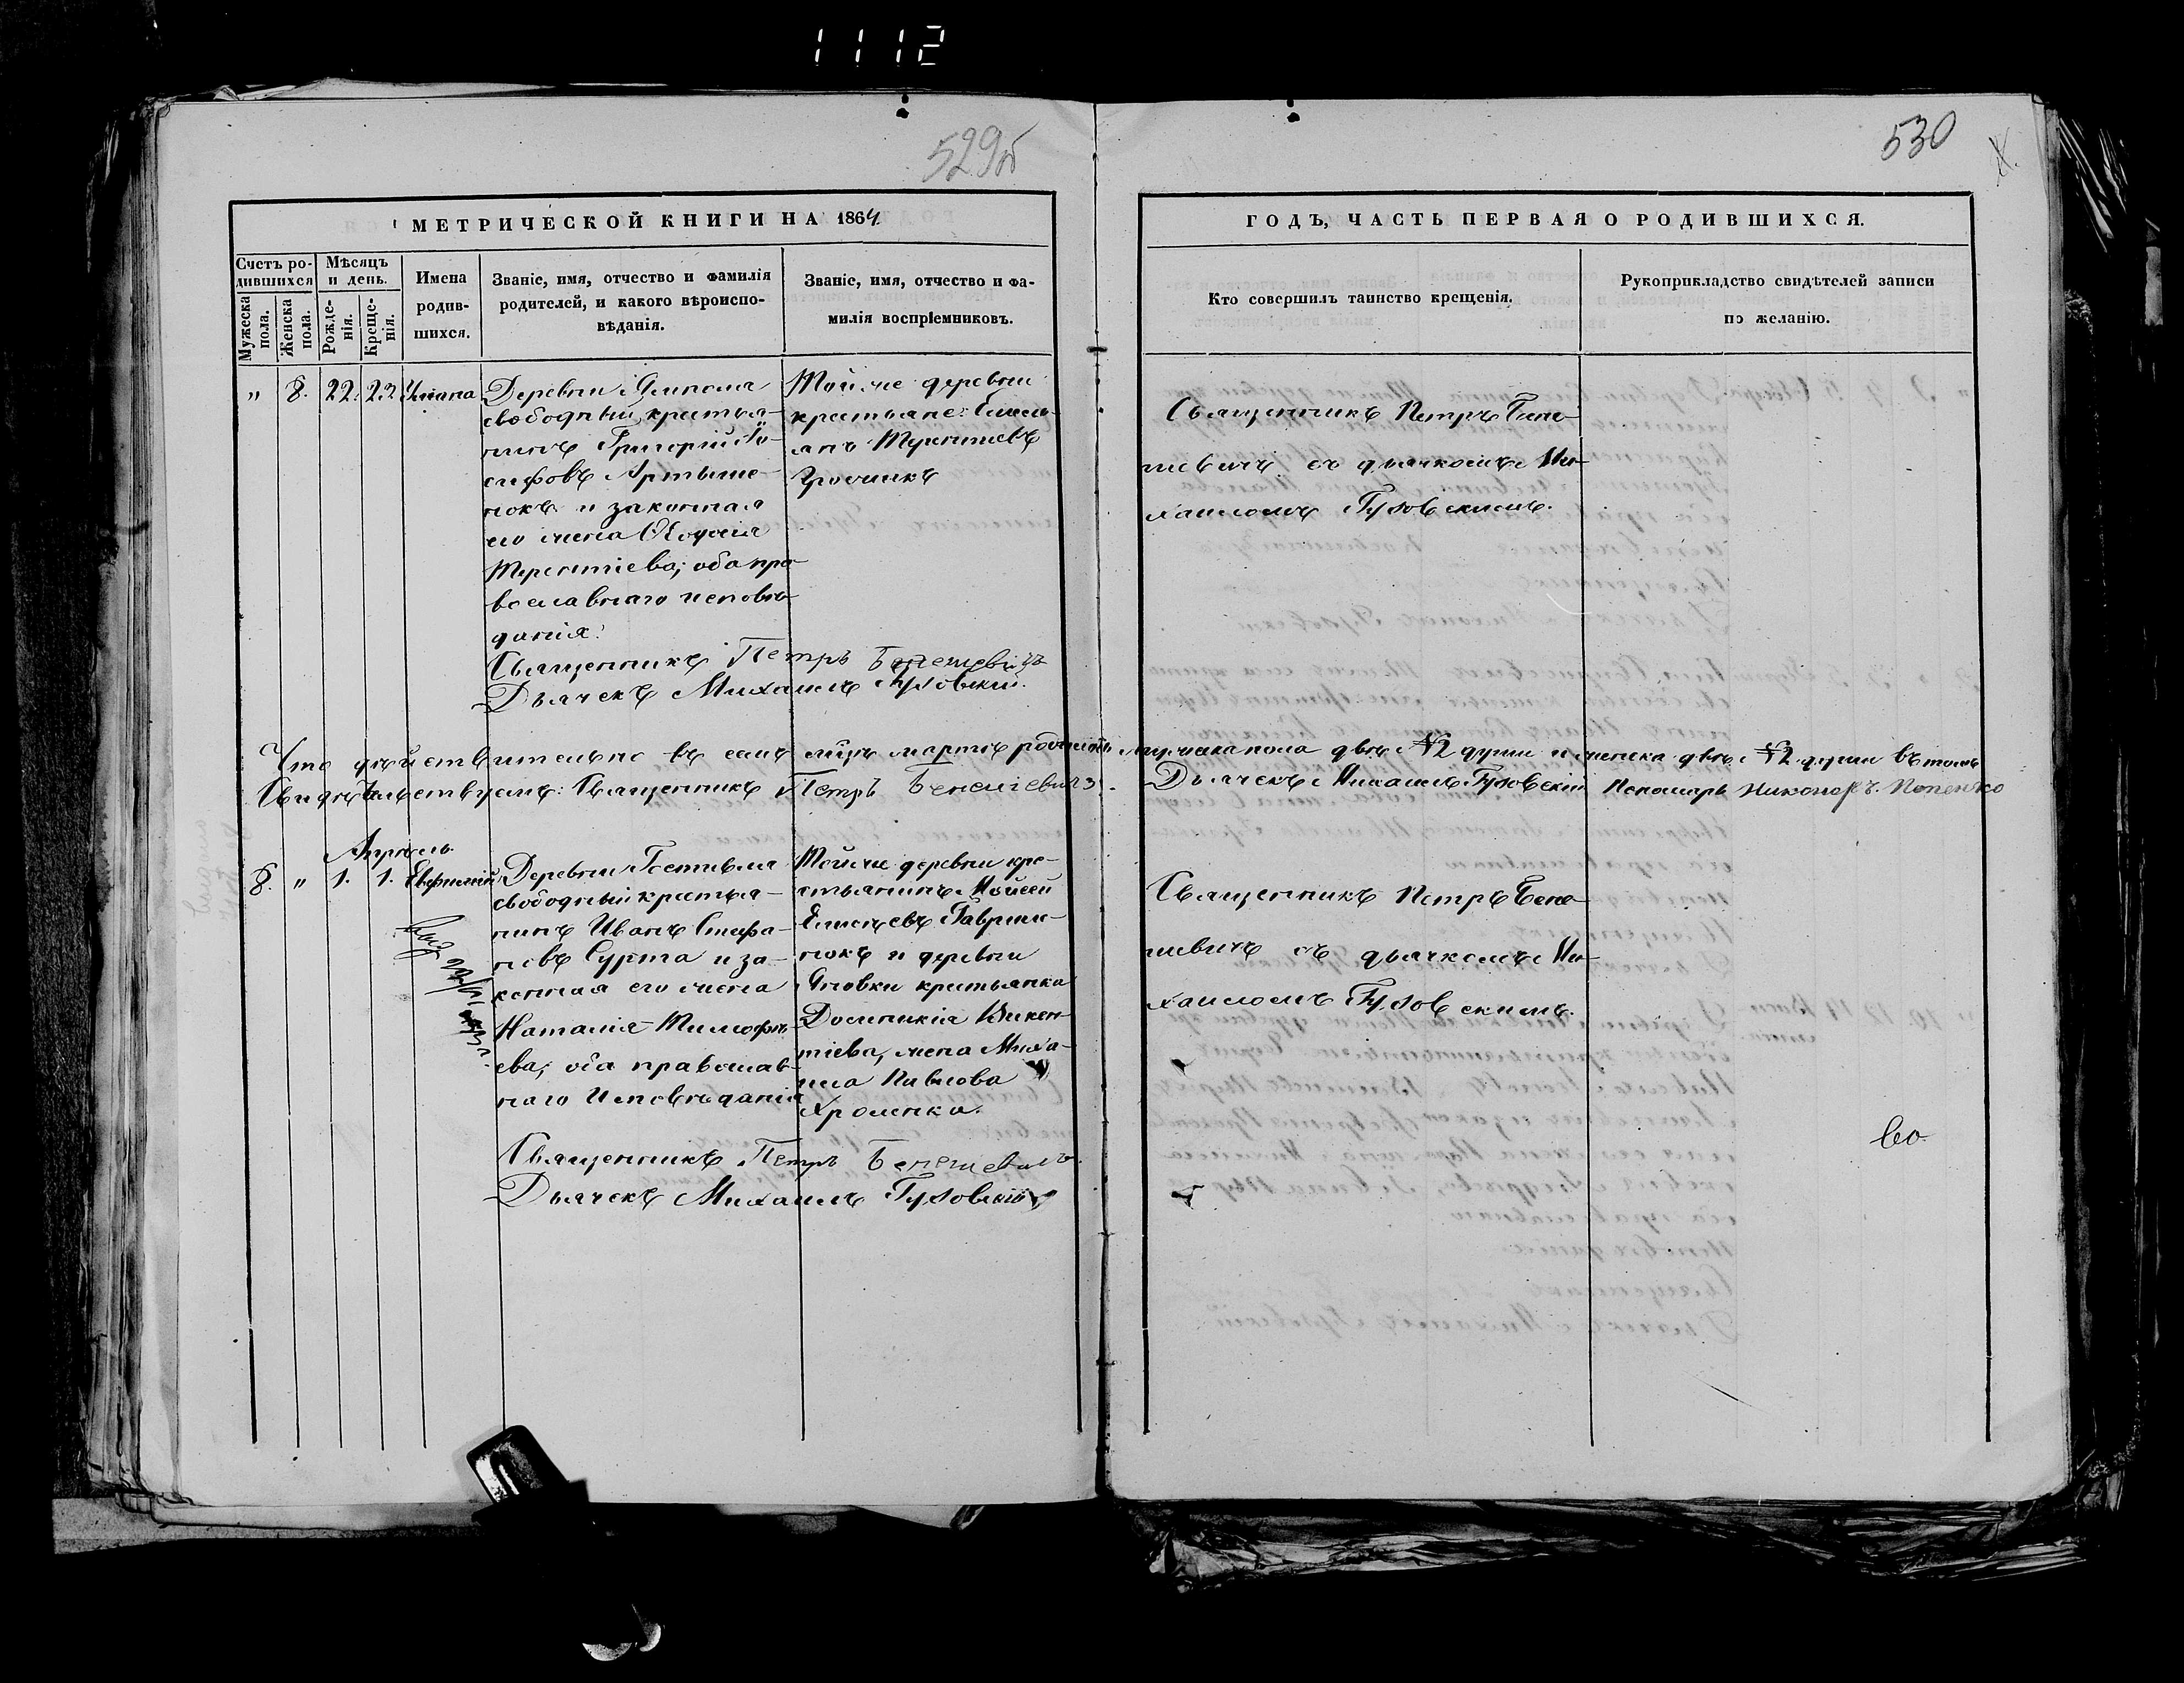 1112
529об
530
МЕТРИЧЕСКОЙ КНИГИ НА 1864
ГОДЪ, ЧАСТЬ ПЕРВАЯ О РОДИВШИХСЯ.
Счетъ ро-
дившихся
Мужеска
пола.
Женска
пола.
Мѣсяцъ
и день.
Рожде-
нія.
Креще-
нія.
Имена
родив-
шихся.
Званіе, имя, отчество и фамилія
родителей, и какого вѣроиспо-
вѣданія.
Званіе, имя, отчество и фа-
милія воспріемниковъ.
Кто совершилъ таинство крещенія.
Рукоприкладство свидѣтелей записи
по желанію.
" 8. 22. 23
Деревни
свободный крестья-
нинъ Григорій Іо-
сифовъ Артыше-
нокъ и законная
его жена Ѳеодосія
Терентіева; оба пра-
вославнаго исповѣ-
данія.
Священникъ Петръ
Дьячекъ Михаилъ Гузовскій.
Той же деревни
крестьяне: Емель-
янъ Терентіевъ
Священникъ Петръ Бене-
шевичъ съ дьячкомъ Ми-
хаиломъ Гузовскимъ.
Что дѣйствительно въ семъ мцѣ мартѣ родилось мужеска пола двѣ №2 души и женска двѣ №2 души въ томъ
Свидѣтельствуемъ: Священникъ Петръ Бенешевичъ. Дьячекъ Михаилъ Гузовскій Пономарь Никоноръ Попенко
Апрѣль.
8. " 1. 1. Евфимій
Деревни
свободный крестья-
нинъ Иванъ Стефа-
новъ Сурта и за-
конная его жена
Наталія Тимофѣ-
ева, оба православ-
наго Исповѣданія
Священникъ Петръ Бенешевичъ.
Дьячекъ Михаилъ Гузовскій
Той же деревни кре-
стьянинъ Мойсей
Елисѣевъ Гаврил-
нокъ и деревни
крестьянка
Доминикія Викен-
тіева, жена Миха-
ила Павлова
Хроменка.
Священникъ Петръ Бене-
шевичъ съ дьячкомъ Ми-
хаиломъ Гузовскимъ.